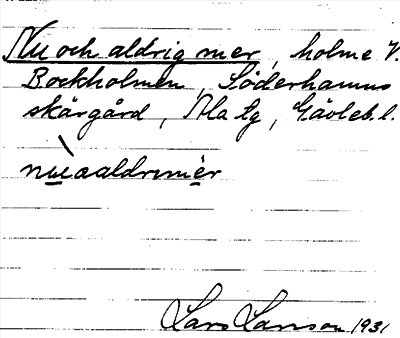 Nu och aldrig mer, holme V.
Bockholmen, Söderhamns
skärgård, Ala tg, Gävleb. l.
nu̲aaldrımè̲r
Lars Larsson 1931